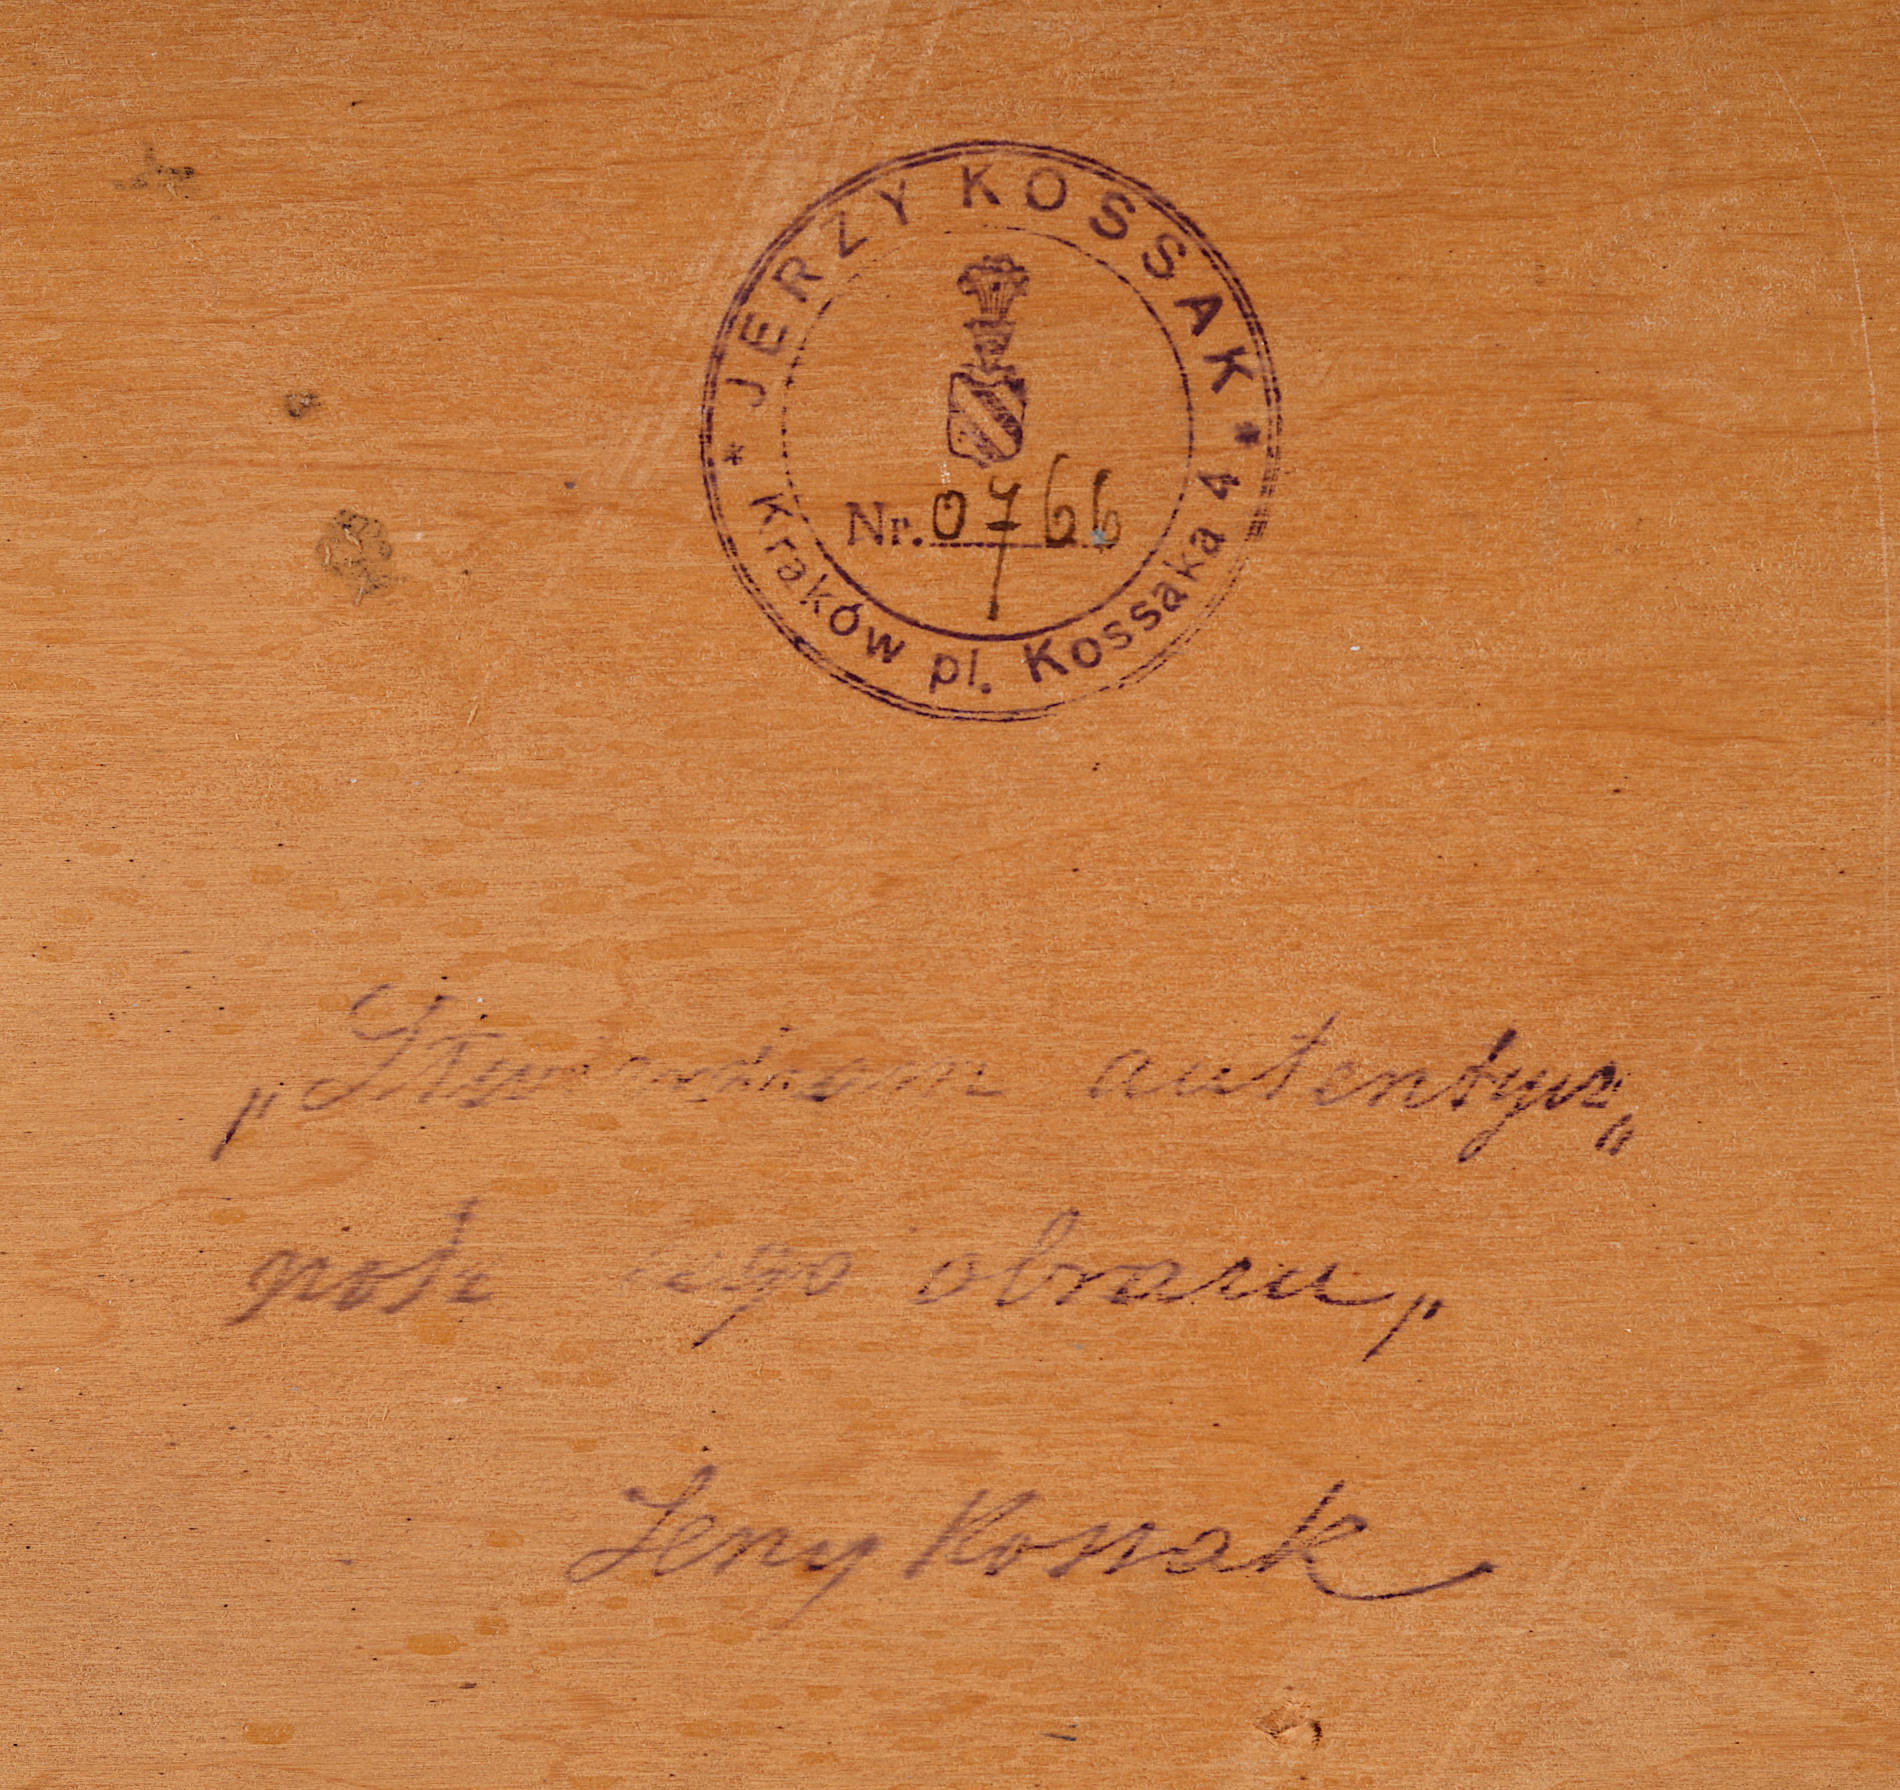 * JERZY KOSSAK *
Nr. 0766
Kraków pl. Kossaka 4
„Stwierdzam autentycz„
ność tego obrazu„
Jerzy Kossak